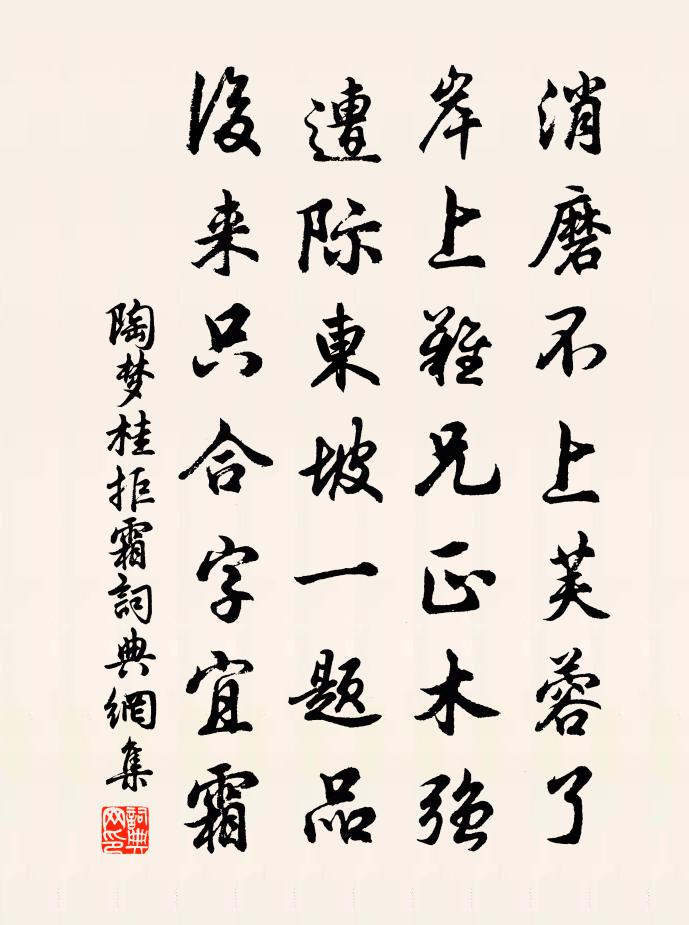 消磨不上芙蓉了
岸上難兄正木強
遭际東坡一题品
後来只合字宜霜
陶梦桂拒霜詞典網集
詞典
网印